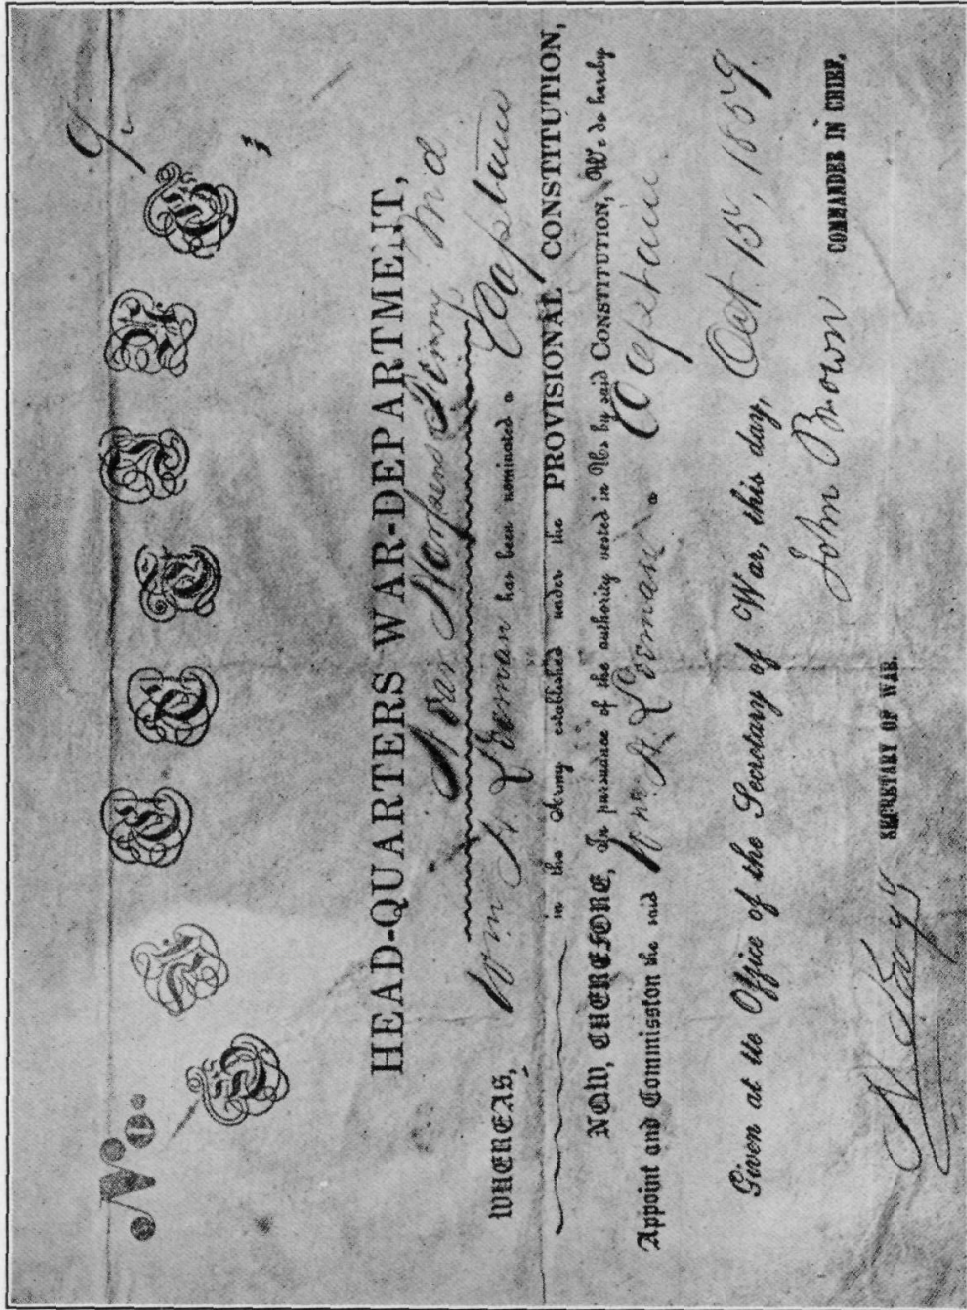 No. 9
HEAD-QUARTERS WAR-DEPARTMENT,
Near Harpers Ferry Md
WHEREAS, Wm H Leeman has been nominated a Captain
in the Army established under the PROVISIONAL CONSTITUTION,
NOW, THEREFORE, In pursuance of the authority vested in Us by said CONSTITUTION, We do hereby
Appoint and Commission the said Wm H Leeman a Captain
Given at the Office of the Secretary of War, this day, Oct 15, 1859.
John Brown
COMMANDER IN CHIEF.
H Kagi
SECRETARY OF WAR.